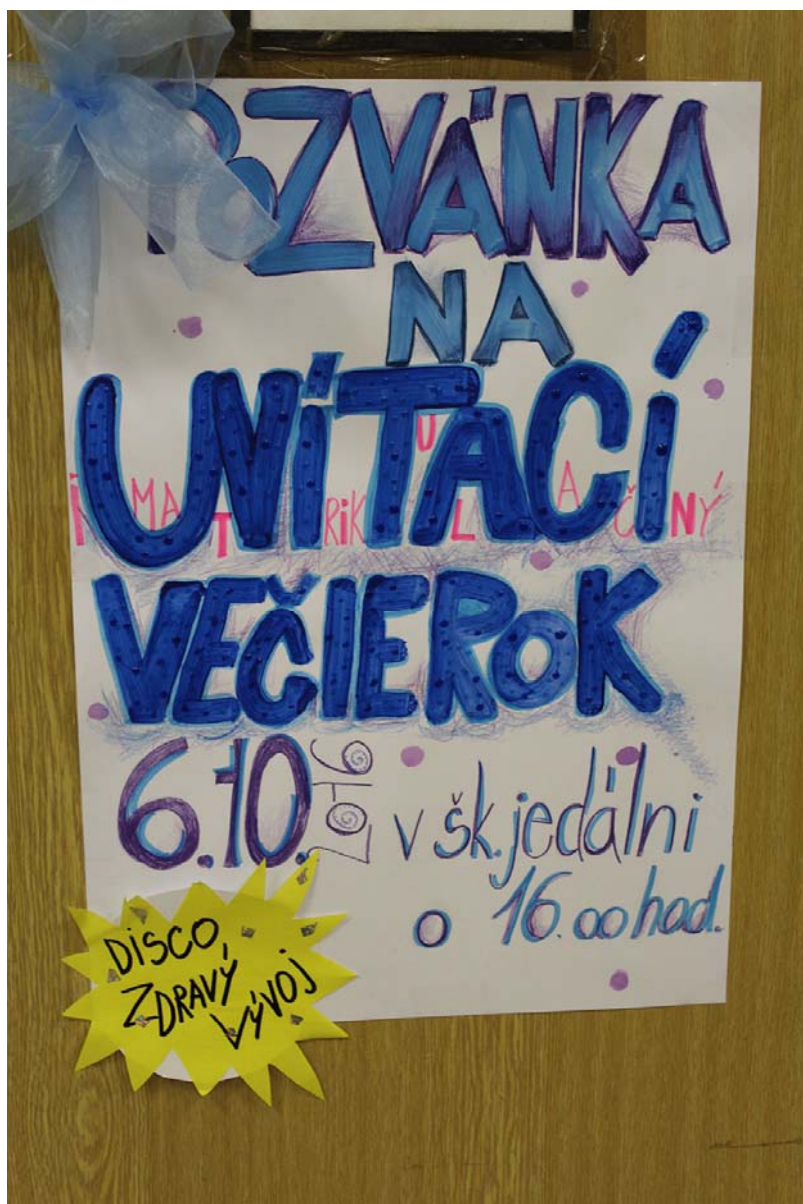 POZVÁNKA
NA
UVÍTACÍ
iMATRiKULAČNÝ
VEČIEROK
6.10. 2016 v šk. jedálni
o 16.00 hod.
DISCO,
ZDRAVÝ
VÝVOJ